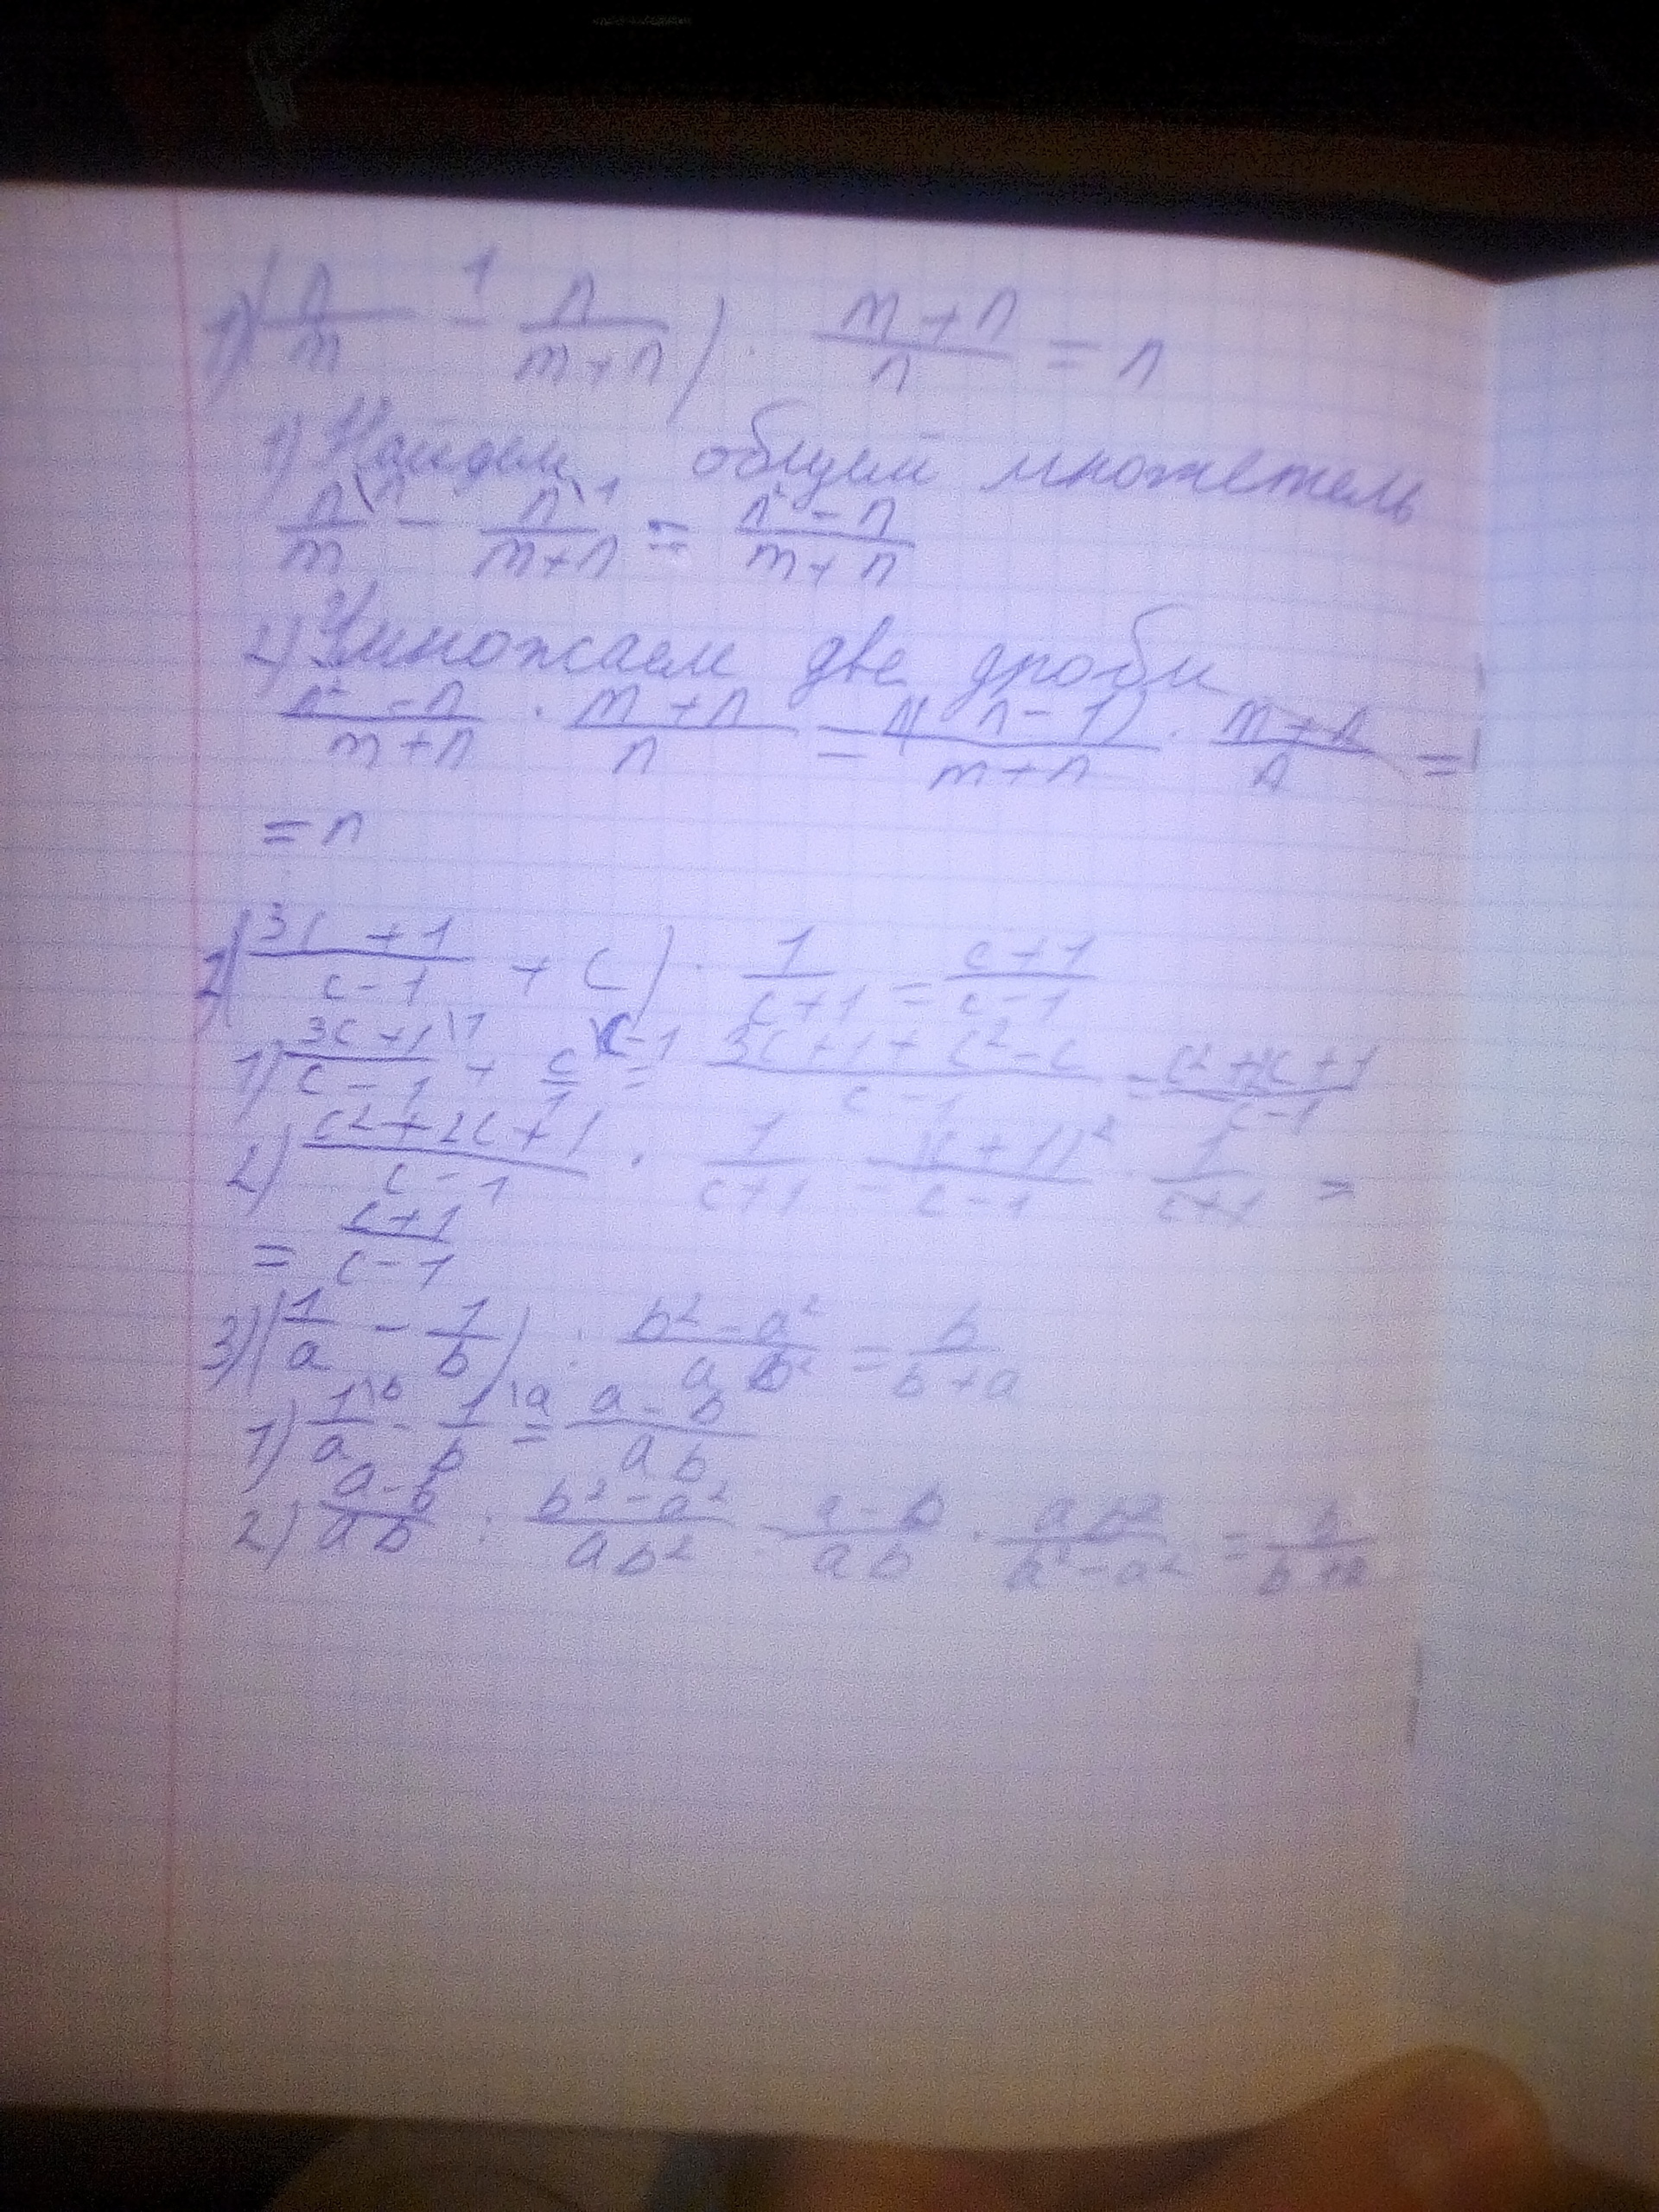 1) (n/m - n/(m+n)) · (m+n)/n = n
1) Найдем общий множетель
n/m \n - n/(m+n) \1 = (n² - n)/(m+n)
2) Умножаем две дроби
(n² - n)/(m+n) · (m+n)/n = n(n-1)/(m+n) · (m+n)/n =
= n
2) ((3c+1)/(c-1) + c) · 1/(c+1) = (c+1)/(c-1)
1) (3c+1)/(c-1) \1 + c/1 \c-1 = (3c+1+c²-c)/(c-1) = (c²+2c+1)/(c-1)
2) (c²+2c+1)/(c-1) · 1/(c+1) = (c+1)²/(c-1) · 1/(c+1) =
= (c+1)/(c-1)
3) (1/a - 1/b) : (b²-a²)/(ab²) = b/(b+a)
1) 1/a \b - 1/b \a = (a-b)/(ab)
2) (a-b)/(ab) : (b²-a²)/(ab²) = (a-b)/(ab) · (ab²)/(b²-a²) = b/(b+a)